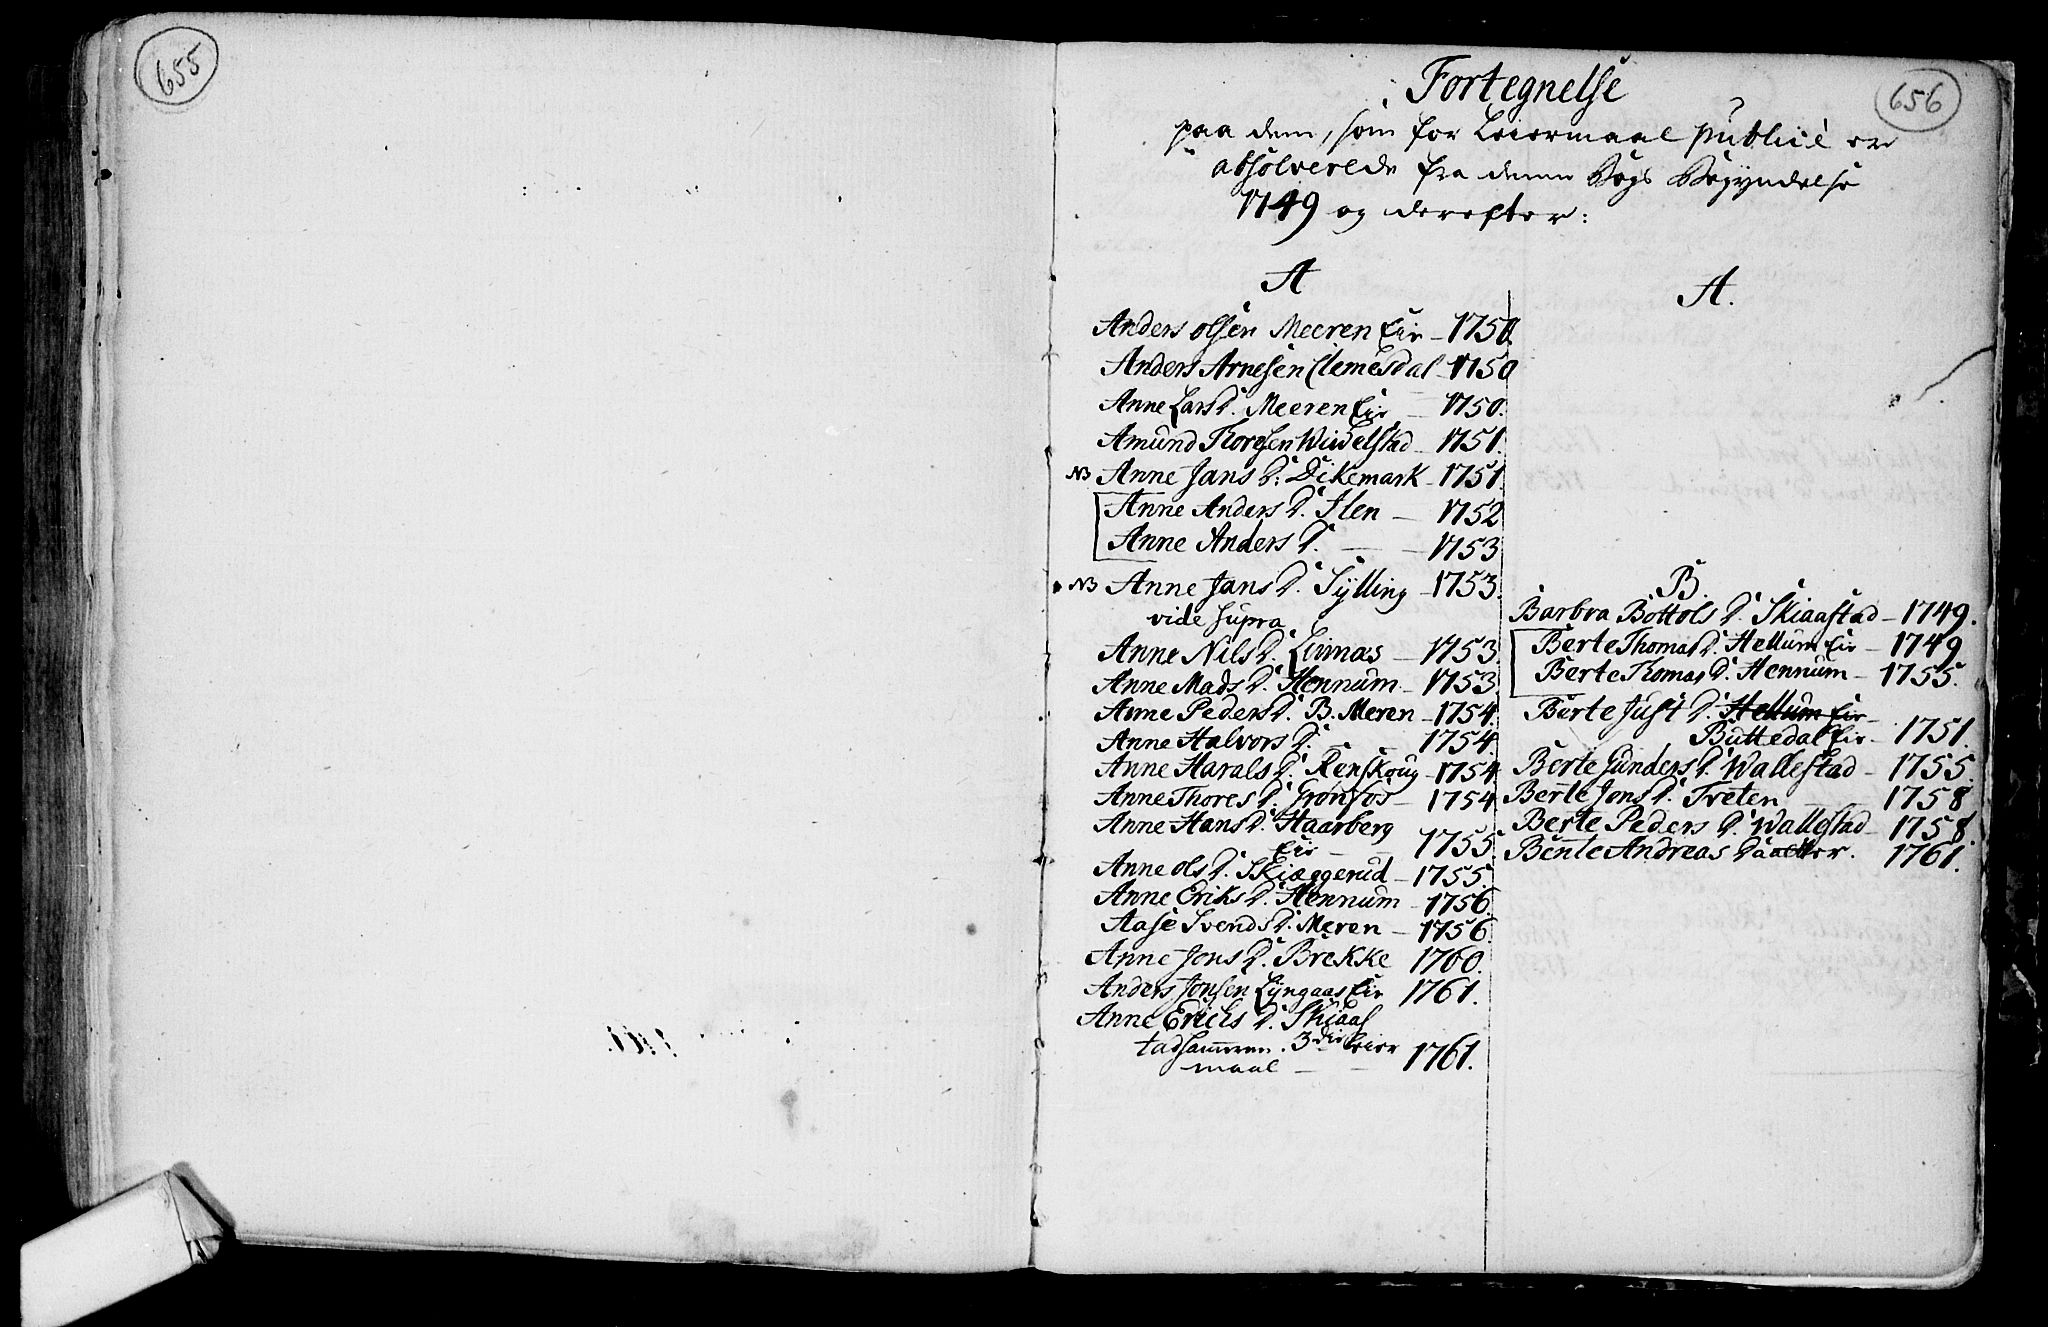 655
656
Fortegnelse
paa dem, som for Leiermaal publicè ere
absolverede fra denne Bogs Begyndelse
1749 og derefter:
A
Anders Olsen Meeren Eie – 1750.
Anders Arnesen Clemesdal – 1750
Anne Lars D. Meeren Eie – 1750.
Amund Thoresen Wiwelstad – 1751.
NB Anne Jans D: Dikemark – 1751.
Anne Anders D. Ilen – 1752
Anne Anders D. – – 1753
NB Anne Jans D. Sÿlling – 1753.
vide supra
Anne Nils D. Linnas – 1753.
Anne Mads D. Hennum – 1753.
Anne Peders D. B. Meren – 1754.
Anne Halvors D. – 1754.
Anne Harals D. Renskoug – 1754.
Anne Thores D. Gronfos – 1754.
Anne Hans D. Haarberg
Eie – – 1755.
Anne Ols D. Skiæggerud – 1755.
Anne Eriks D. Hennum – 1756.
Aase Svends D. Meren – 1756.
Anne Jons D. Brekke 1760.
Anders Jonsen Lÿngaas Eie 1761.
Anne Erichs D. Skiaaf
tadsammen. 3die Leier
maal – – 1761.
A.
B.
Barbra Bottols D. Skiaafstad – 1749.
Berte Thomas D. Hellum Eie – 1749
Berte Thomas D. Hennum – 1755.
Berte Just D. Hellum Eie –
Buttedal Eie – 1751.
Berte Gunders D. Wallestad – 1755.
Bente Jons D. Tveten 1758
Berte Peders D. Wallestad – 1758.
Bente Andreas Daatter. 1761.